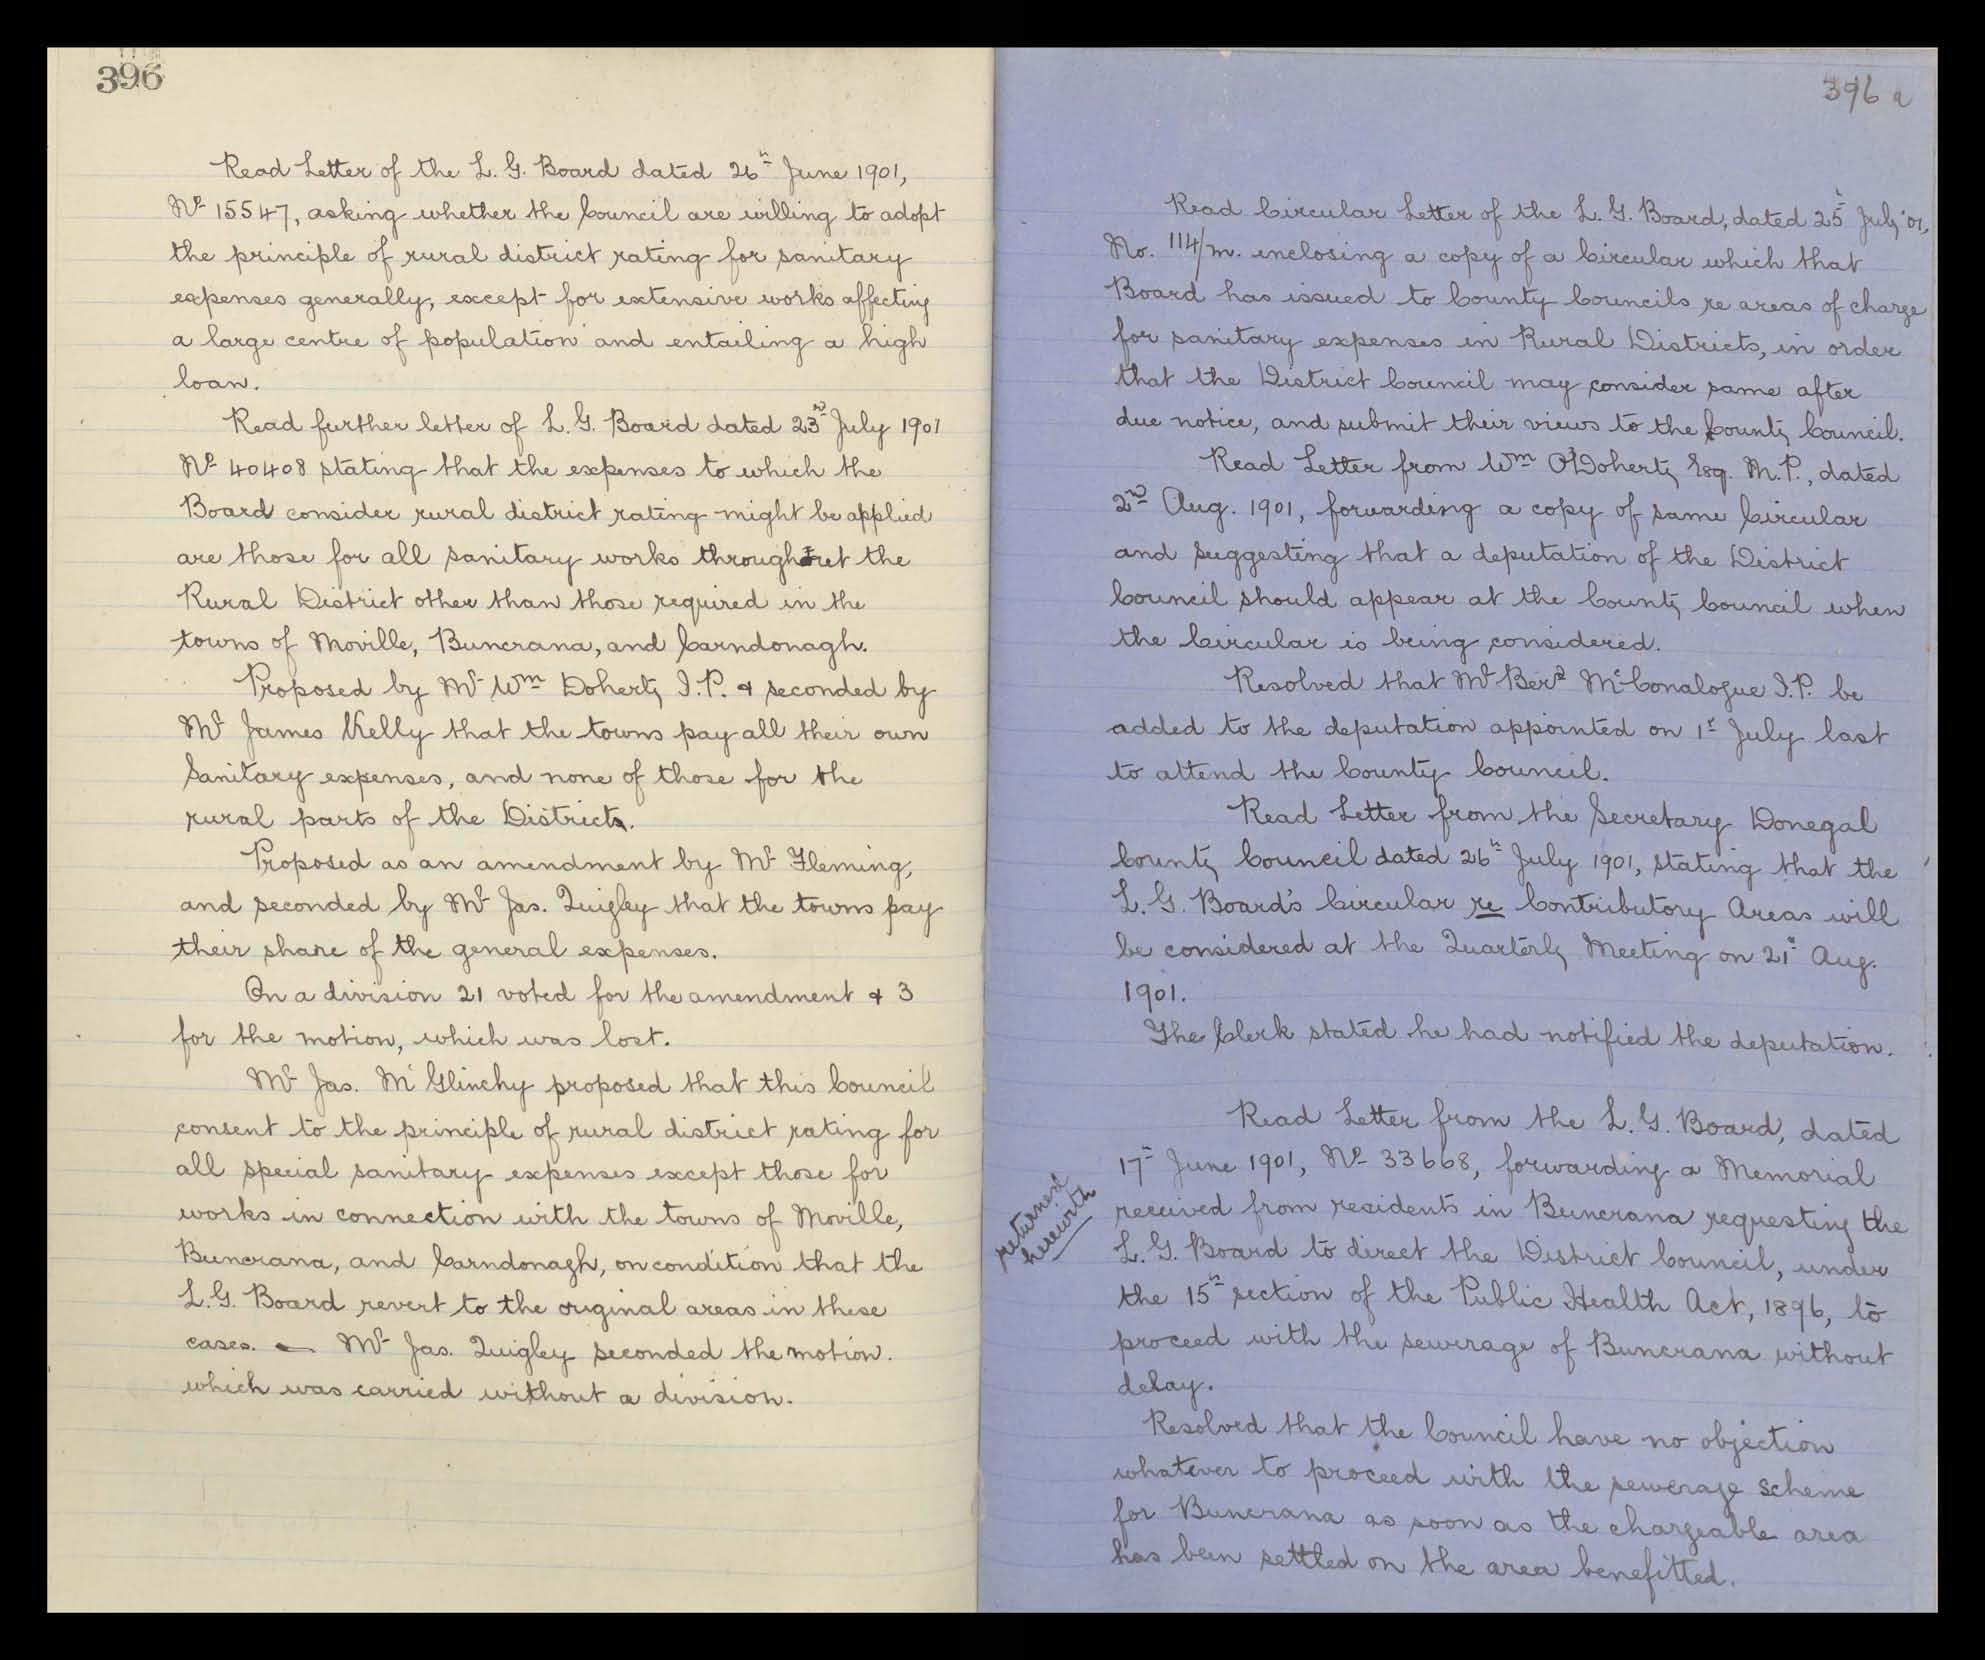 396
Read Letter of the L. G. Board dated 26th June 1901,
No 15547, asking whether the Council are willing to adopt
the principle of rural district rating for sanitary
expenses generally, except for extensive works affecting
a large centre of population and entailing a high
loan.
Read further letter of L. G. Board dated 23rd July 1901
No 40408 stating that the expenses to which the
Board consider rural district rating might be applied
are those for all sanitary works throughout the
Rural District other than those required in the
towns of Moville, Buncrana, and Carndonagh.
Proposed by Mr Wm Doherty J.P. & seconded by
Mr James Kelly that the towns pay all their own
Sanitary expenses, and none of those for the
rural parts of the District.
Proposed as an amendment by Mr Fleming,
and seconded by Mr Jas. Quigley that the towns pay
their share of the general expenses.
On a division 21 voted for the amendment & 3
for the motion, which was lost.
Mr Jas. McGlinchy proposed that this Council
consent to the principle of rural district rating for
all special sanitary expenses except those for
works in connection with the towns of Moville,
Buncrana, and Carndonagh, on condition that the
L.G. Board revert to the original areas in these
cases. — Mr Jas. Quigley seconded the motion.
which was carried without a division.
396 a
Read Circular Letter of the L. G. Board, dated 25th July '01,
No. 114/m. enclosing a copy of a Circular which that
Board has issued to County Councils re areas of charge
for sanitary expenses in Rural Districts, in order
that the District Council may consider same after
due notice, and submit their views to the County Council.
Read Letter from Wm O'Doherty Esq. M.P., dated
2nd Aug. 1901, forwarding a copy of same Circular
and suggesting that a deputation of the District
Council should appear at the County Council when
the Circular is being considered.
Resolved that Mr Berd McConalogue J.P. be
added to the deputation appointed on 1st July last
to attend the County Council.
Read Letter from the Secretary Donegal
County Council dated 26th July 1901, stating that the
L. G. Board's Circular re Contributory Areas will
be considered at the Quarterly Meeting on 21st Aug.
1901.
The Clerk stated he had notified the deputation.
Read Letter from the L. G. Board, dated
17th June 1901, No 33668, forwarding a Memorial
returned
herewith
received from residents in Buncrana requesting the
L. G. Board to direct the District Council, under
the 15th section of the Public Health Act, 1896, to
proceed with the sewerage of Buncrana without
delay.
Resolved that the Council have no objection
whatever to proceed with the sewerage scheme
for Buncrana as soon as the chargeable area
has been settled on the area benefitted.